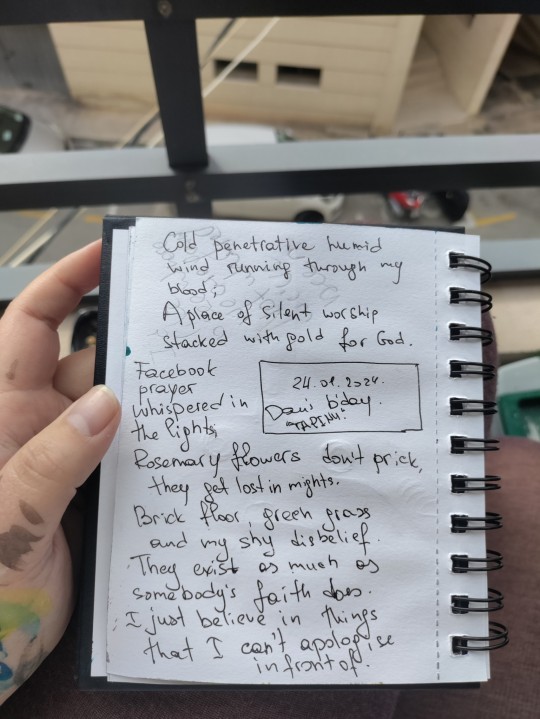 Cold penetrative humid
wind running through my
blood;
A place of silent worship
stacked with gold for God.
Facebook
prayer
whispered in
the lights;
24.01.2024.
bday.
Rosemary flowers don't prick,
they get lost in mights.
Brick floor, green grass
and my shy disbelief.
They exist as much as
somebody's faith does.
I just believe in things
that I can't apologise
in front of.